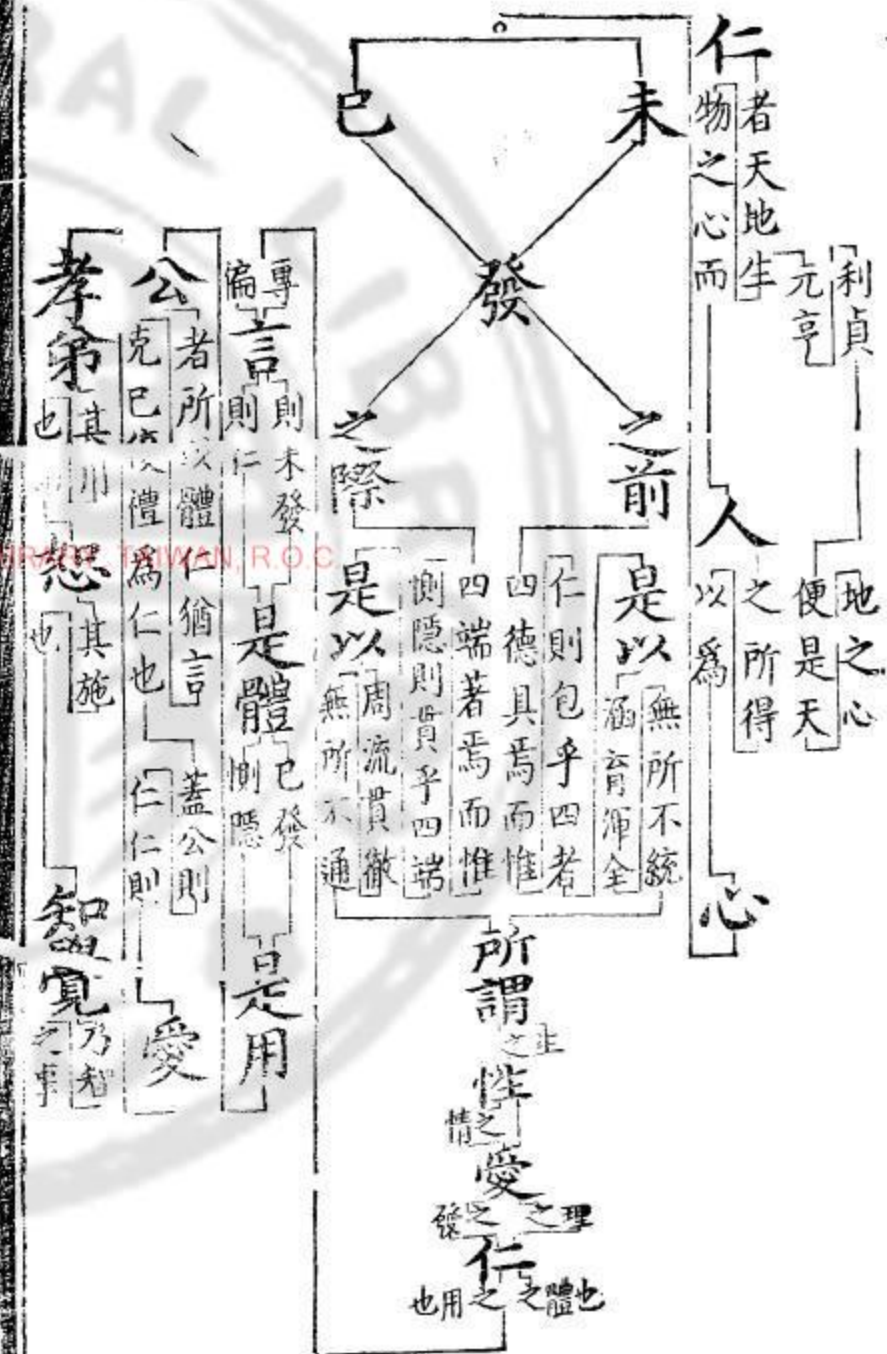 仁
者天地生
物之心而
元亨
利貞
便是天
地之心
人
之所得
以爲
心
未
已
發
之前
之際
是以
無所不統
涵育渾全
仁則包乎四者
四德具焉而惟
四端著焉而惟
惻隱則貫乎四端
是以
周流貫徹
無所不通
所謂
性
之生
情之
愛
之理
之發
仁
之體也
之用也
專
偏
言
則未發
則仁
是體
已發
惻隱
是用
公
者所以體仁猶言
克已復禮爲仁也
蓋公則
仁仁則
愛
孝弟
其用
也
恕
其施
也
知覺
乃智
之事
RAL LIBRAR
BRARY, TAIWAN, R.O.C